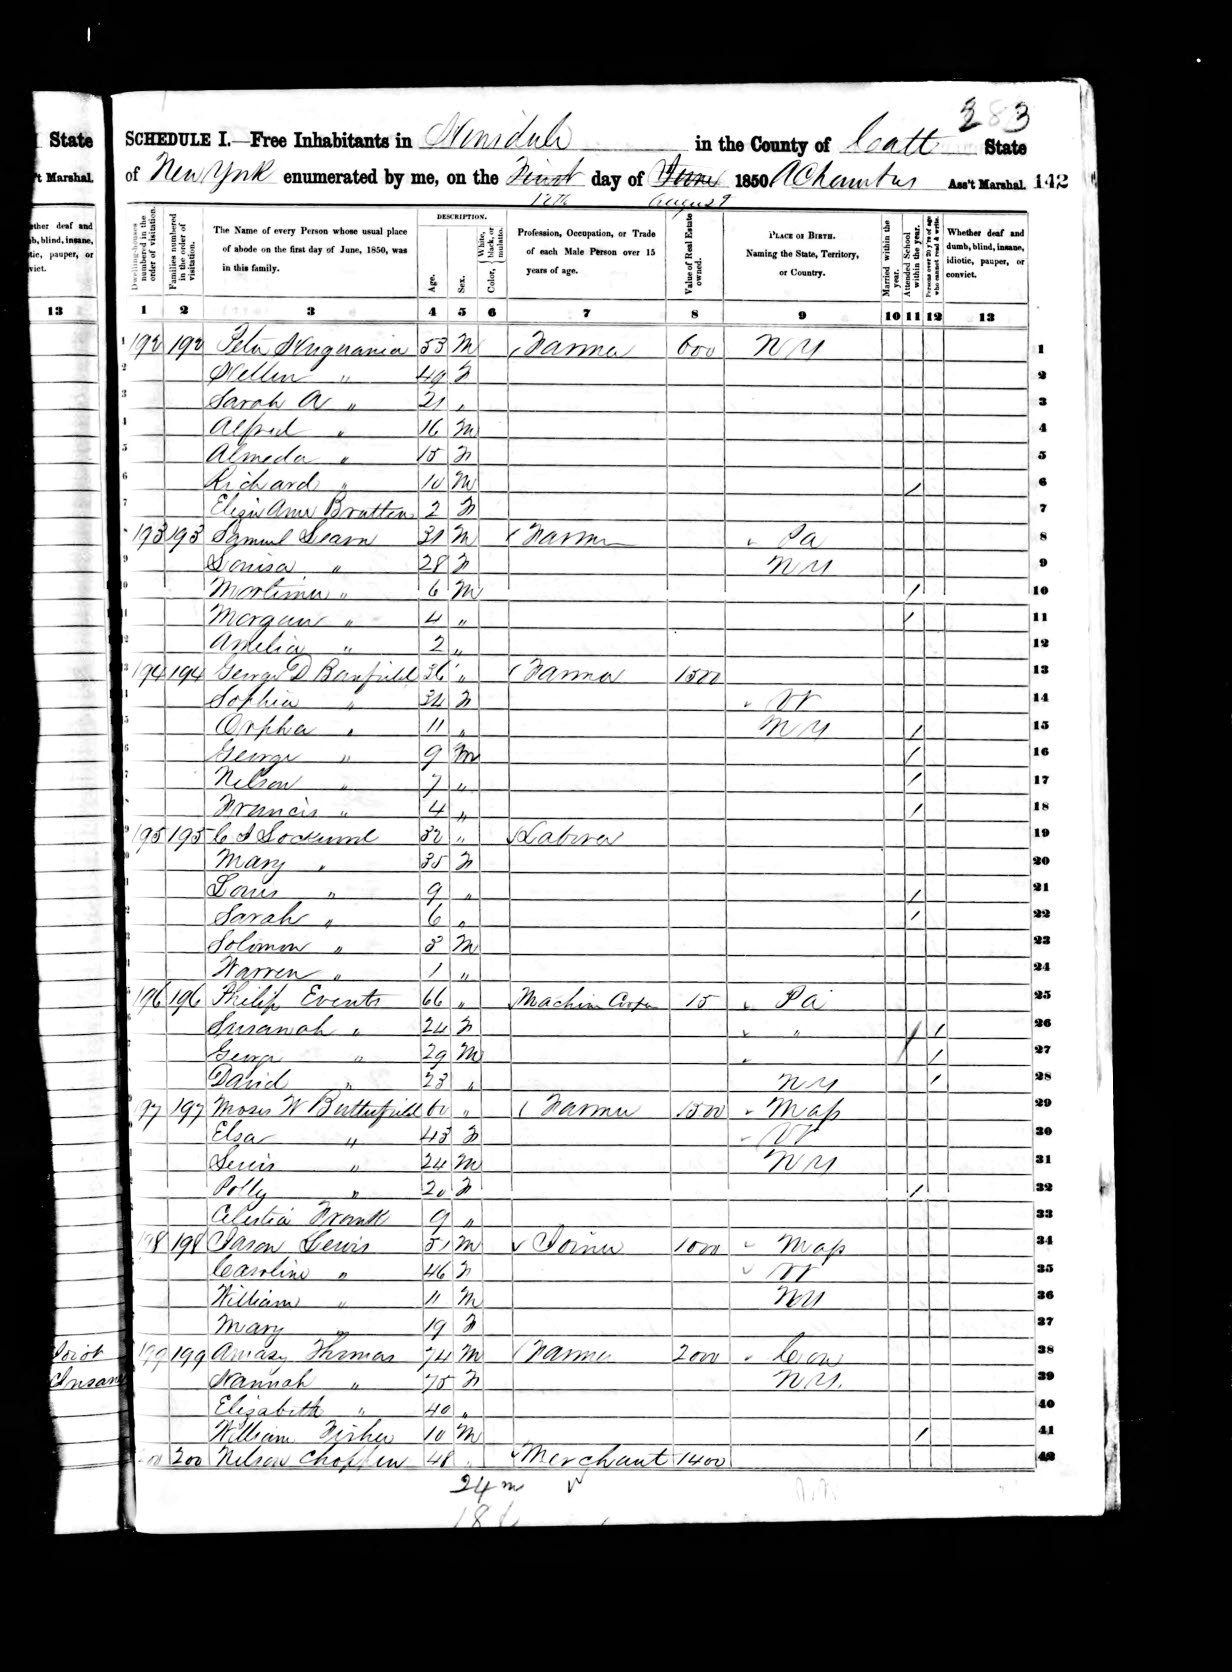 283
State
SCHEDULE I.—Free Inhabitants in Hinsdale in the County of Catt State
't Marshal.
of New York enumerated by me, on the First day of June 1850 A Chambers Ass't Marshal. 142
August
ether deaf and
b, blind, insane,
tic, pauper, or
vict.
DESCRIPTION.
Dwelling-houses numbered in the order of visitation.
Families numbered in the order of visitation.
The Name of every Person whose usual place of abode on the first day of June, 1850, was in this family.
Age.
Sex.
Color, White, black, or mulatto.
Profession, Occupation, or Trade of each Male Person over 15 years of age.
Value of Real Estate owned.
PLACE OF BIRTH. Naming the State, Territory, or Country.
Married within the year.
Attended School within the year.
Persons over 20 y'rs of age who cannot read & write.
Whether deaf and dumb, blind, insane, idiotic, pauper, or convict.
13
1 2 3 4 5 6 7 8 9 10 11 12 13
1 192 192 Peter 53 M Farmer 600 NY 1
2 Hellen " 49 F 2
3 Sarah A " 21 " 3
4 Alfred " 16 M 4
5 Almeda " 15 F 5
6 Richard " 10 M / 6
7 Eliza Ann Bratten 2 F 7
193 193 Samuel Learn 31 M Farmer Pa 8
9 Louisa " 28 F NY 9
10 Mortimer " 6 M / 10
11 Morgan " 4 " / 11
12 Amelia " 2 " 12
13 194 194 George D Banfield 36 " Farmer 1500 13
Sophia " 34 F Vt 14
Orpha " 11 " NY / 15
6 George " 9 M / 16
7 Nelson " 7 " / 17
Francis " 4 " / 18
9 195 195 C I Lockwood 32 " Laborer 19
Mary " 35 F 20
Louis " 9 " / 21
2 Sarah " 6 " / 22
Solomon " 3 M 23
Warren " 1 " 24
196 196 Philip Events 66 " Machin Cooper 15 Pa 25
Susanah " 24 F " / / 26
George " 29 M / / 27
David " 23 " NY / 28
97 197 Moses W Butterfield 60 " Farmer 1500 Mass 29
Elsa " 43 F Vt 30
Lewis " 24 M NY 31
Polly " 20 F / 32
Celestia Frank 9 " 33
198 198 Jason Lewis 51 M Joiner 1000 Mass 34
Caroline " 46 F Vt 35
William " 11 M NY 36
Mary " 19 F 37
Idiot 199 199 Amasy Thomas 74 M Farmer 2000 Con 38
Insane Hannah " 75 F NY. 39
Elisabeth " 40 " 40
William Fisher 10 M / 41
200 Nelson Chopfin 48 " Merchant 1400 42
24 m
18 f